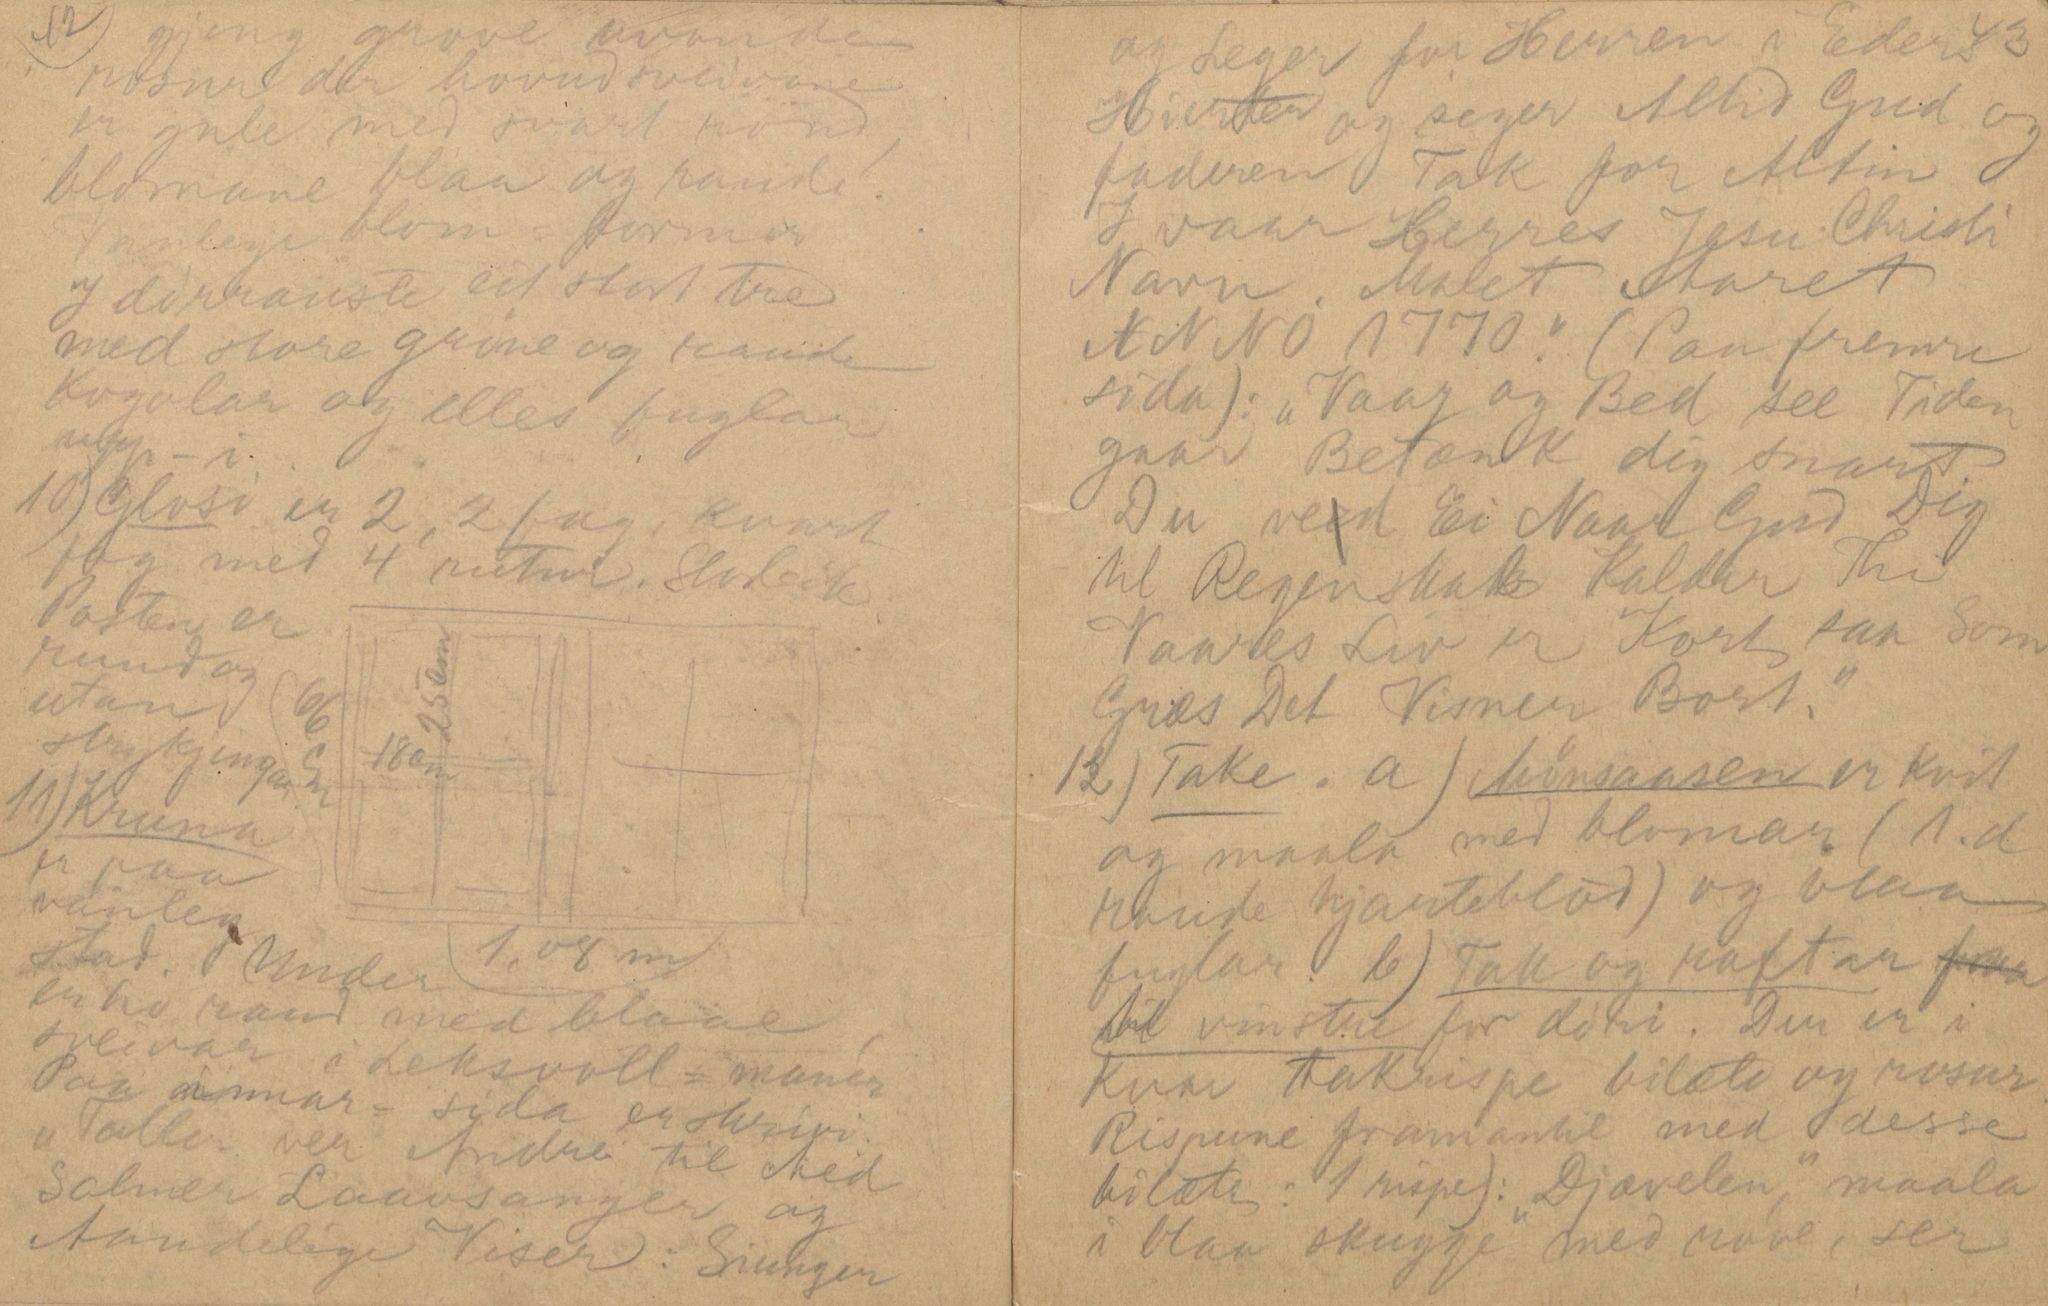 42)
gjeng grove raude
rosur der hovudsveivane
er gule med svart rönd,
blomane blaa og raude.
Vanlege blom = former
I dörrauste eit stort tre
med store gröne og raude
kogolar og elles fuglar
upp-i.
10) Glosi er 2, 2 fag, kvart
fag med 4 rutur.
Posten er
rund og
utan
strykjingar.
66 cm
25 cm
18 cm
1,08 m
11) Kruna
er paa
vanleg
stad. Under
er ho raud med blaae
sveivar i Leksvoll = manér
Paa innar = sida er skrivi:
"Taller ver Andre til Med
Salmer Laavsanger og
Aandelige Viser: Siunger
43
og Leger for Herren i Eders
Hierter og siger Altid Gud og
faderen Tak for Altin
I vaar Herres Jesu Christi
Navn. Malet Aaret
ANNO 1770." (Paa fremre
sida): "Vaag og Bed see Tiden
gaar Betænk dig snart
Du ved Ei Naar Gud Dig
til Regenskab Kalder Thi
Vaares Liv er Kort saa Som
Græs Det Visner Bort."
12) Take. a) Mönsaasen er kvit
og maala med blomar (1.d
raude hjarteblöd) og blaa
fuglar. b) Tak og raftar fraa
til vinstre for döri. Der er i
kvar takrispe bilæte og rosur.
Rispune framantil med desse
bilæte: 1 rispe): "Djævelen," maala
i blaa skugge" med rove, ser